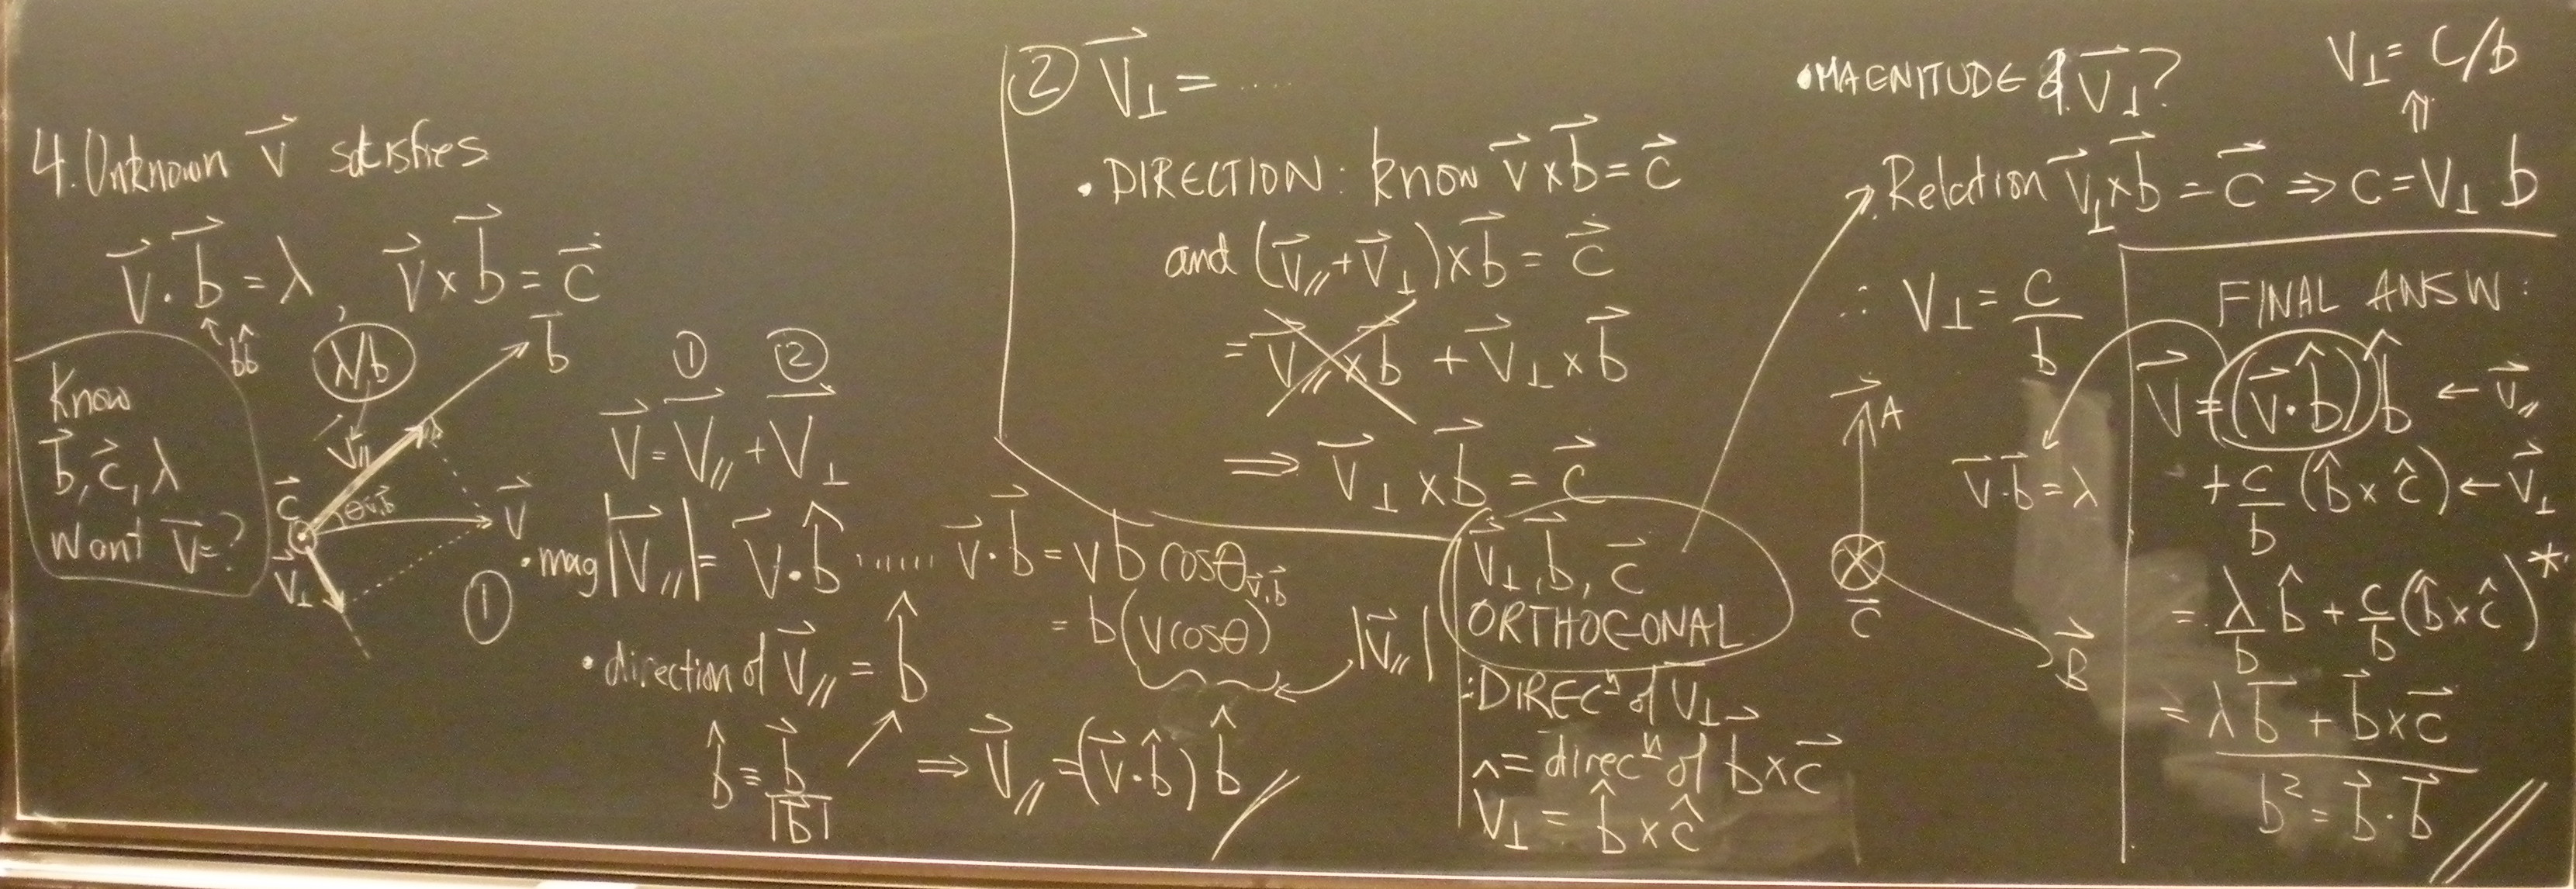 4. Unknown v⃗ satisfies
v⃗·b⃗ = λ, v⃗×b⃗ = c⃗
b b̂
Know
b⃗, c⃗, λ
Want v⃗=?
λ/b
b⃗
v⃗∥
c⃗
θv,b
v⃗
v⃗⊥
① ②
v⃗ = v⃗∥ + v⃗⊥
①
• mag |v⃗∥| = v⃗·b̂ ...... v⃗·b⃗ = v b cosθv⃗,b⃗
= b(v cosθ) |v⃗∥|
• direction of v⃗∥ = b̂
b̂ = b⃗/|b⃗| ⇒ v⃗∥ = (v⃗·b̂) b̂ //
② v⃗⊥ = .....
• DIRECTION: know v⃗×b⃗ = c⃗
and (v⃗∥ + v⃗⊥)×b⃗ = c⃗
= v⃗∥×b⃗ + v⃗⊥×b⃗
⇒ v⃗⊥×b⃗ = c⃗
v⃗⊥, b⃗, c⃗
ORTHOGONAL
: DIRECⁿ of v⃗⊥
= direcⁿ of b⃗×c⃗
v̂⊥ = b̂×ĉ
• MAGNITUDE of v⃗⊥?
Relation v⃗⊥×b⃗ = c⃗ ⇒ c = v⊥ b
⇑
v⊥ = c/b
∴ v⊥ = c/b
A⃗
c⃗
B⃗
v⃗·b⃗ = λ
FINAL ANSW:
v⃗ = (v⃗·b̂) b̂ ← v⃗∥
+ c/b (b̂×ĉ) ← v⃗⊥
= λ/b b̂ + c/b (b̂×ĉ) *
= (λb⃗ + b⃗×c⃗)/(b² = b⃗·b⃗) //